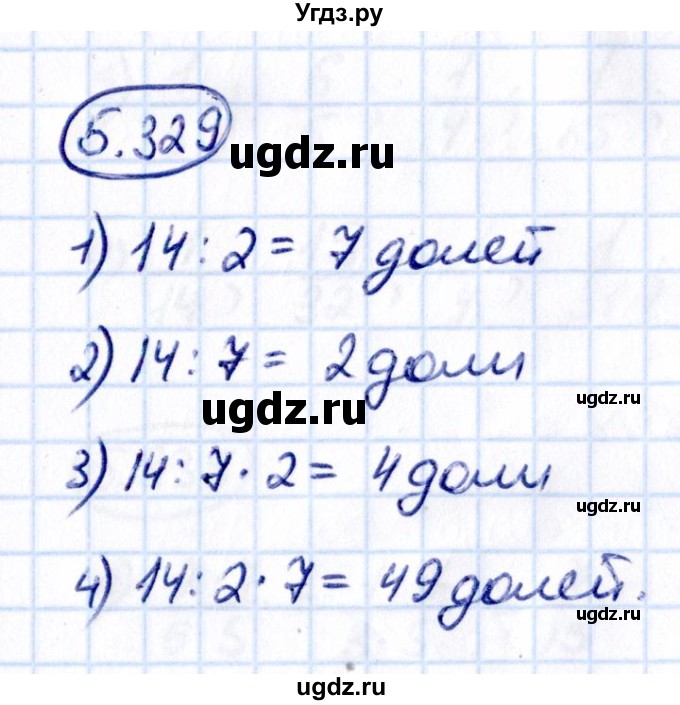 Угдз.ру
5.329
ugdz.ru
1) 14 : 2 = 7 долей
2) 14 : 7 = 2 доли
ugdz.ru
ugdz.ru
3) 14 : 7 · 2 = 4 доли
ugdz.ru
4) 14 : 2 · 7 = 49 долей.
ugdz.ru
ugdz.ru